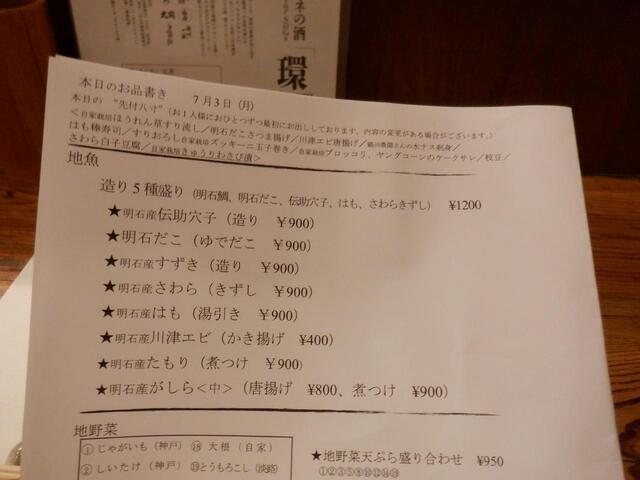 ネの酒
「環
本日のお品書き　7月3日（月）
本日の "先付八寸"（お1人様におひとつずつ最初にお出ししております、内容の変更がある場合がございます。）
＜自家栽培ほうれん草すり流し／明石だこさつま揚げ／川津エビ唐揚げ／鶴田農園さんの水ナス刺身／
はも棒寿司／すりおろし自家栽培ズッキーニ玉子巻き／自家栽培ブロッコリ、ヤングコーンのケークサレ／枝豆／
さわら白子豆腐／自家栽培きゅうりわさび漬＞
地魚
造り5種盛り（明石鯛、明石だこ、伝助穴子、はも、さわらきずし）　¥1200
★明石産伝助穴子（造り　¥900）
★明石だこ（ゆでだこ　¥900）
★明石産すずき（造り　¥900）
★明石産さわら（きずし　¥900）
★明石産はも（湯引き　¥900）
★明石産川津エビ（かき揚げ　¥400）
★明石産たもり（煮つけ　¥900）
★明石産がしら＜中＞（唐揚げ　¥800、煮つけ　¥900）
地野菜
①じゃがいも（神戸）　⑱大根（自家）
②しいたけ（神戸）　⑲とうもろこし（淡路）
★地野菜天ぷら盛り合わせ　¥950